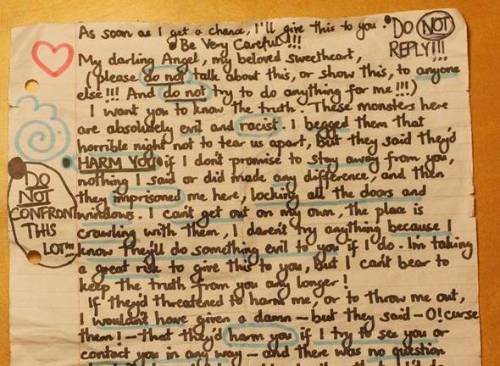 As soon as I get a chance, I'll give this to you.
DO NOT
REPLY!!!
Be Very Careful!!!
My darling Angel, my beloved sweetheart,
(please do not talk about this, or show this, to anyone
else!!! And do not try to do anything for me!!!)
I want you to know the truth. These monsters here
are absolutely evil and racist. I begged them that
horrible night not to tear us apart, but they said they'd
HARM YOU if I don't promise to stay away from you,
nothing I said or did made any difference, and then
they imprisoned me here, locking all the doors and
windows. I can't get out on my own, the place is
crawling with them, I daren't try anything because I
know they'll do something evil to you if I do. I'm taking
a great risk to give this to you, but I can't bear to
keep the truth from you any longer!
If they'd threatened to harm me, or to throw me out,
I wouldn't have given a damn – but they said – O! curse
them! – that they'd harm you if I try to see you or
contact you in any way – and there was no question
DO
NOT
CONFRONT
THIS
LOT!!!